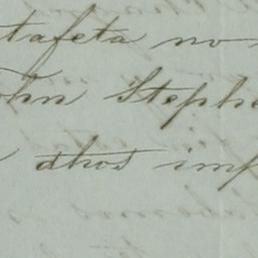 tafeta no
ohn Stephe
dhos imp